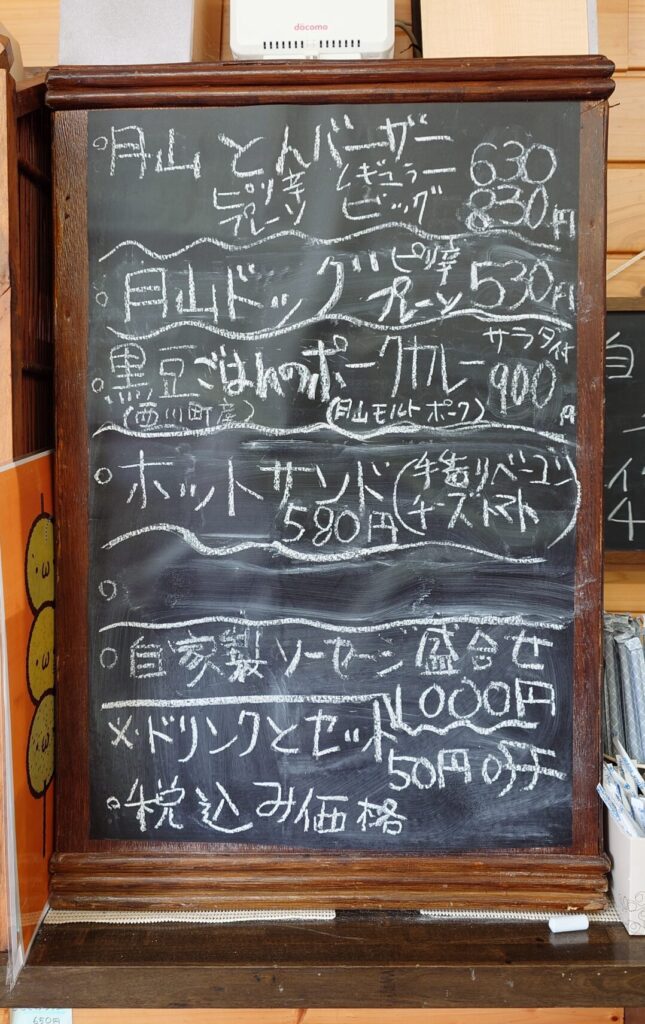 docomo
月山 とんバーザー 630
ピリ辛 レギュラー
プレーン ビッグ 830円
月山ドッグ ピリ辛 530円
プレーン
黒豆ごはんのポークカレー サラダ付 900円
(西川町産) (月山モルトポーク)
ホットサンド (手造りベーコン
580円 チーズトマト)
自家製ソーセージ盛合せ
1000円
※・ドリンクとセット
50円引き
税込み価格
自
イ
4
650円